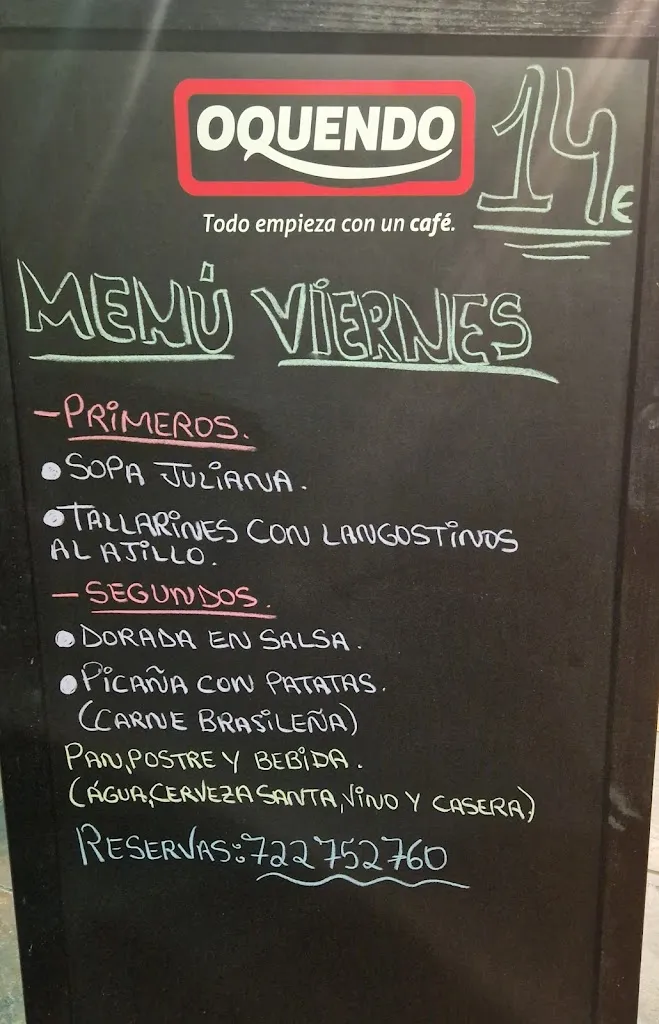 OQUENDO
14€
Todo empieza con un café.
MENÚ VIERNES
- PRIMEROS.
• SOPA JULIANA.
• TALLARINES CON LANGOSTINOS
AL AJILLO.
- SEGUNDOS.
• DORADA EN SALSA.
• PICAÑA CON PATATAS.
(CARNE BRASILEÑA)
PAN, POSTRE Y BEBIDA.
(ÁGUA, CERVEZA SANTA, VINO Y CASERA)
RESERVAS: 722752760